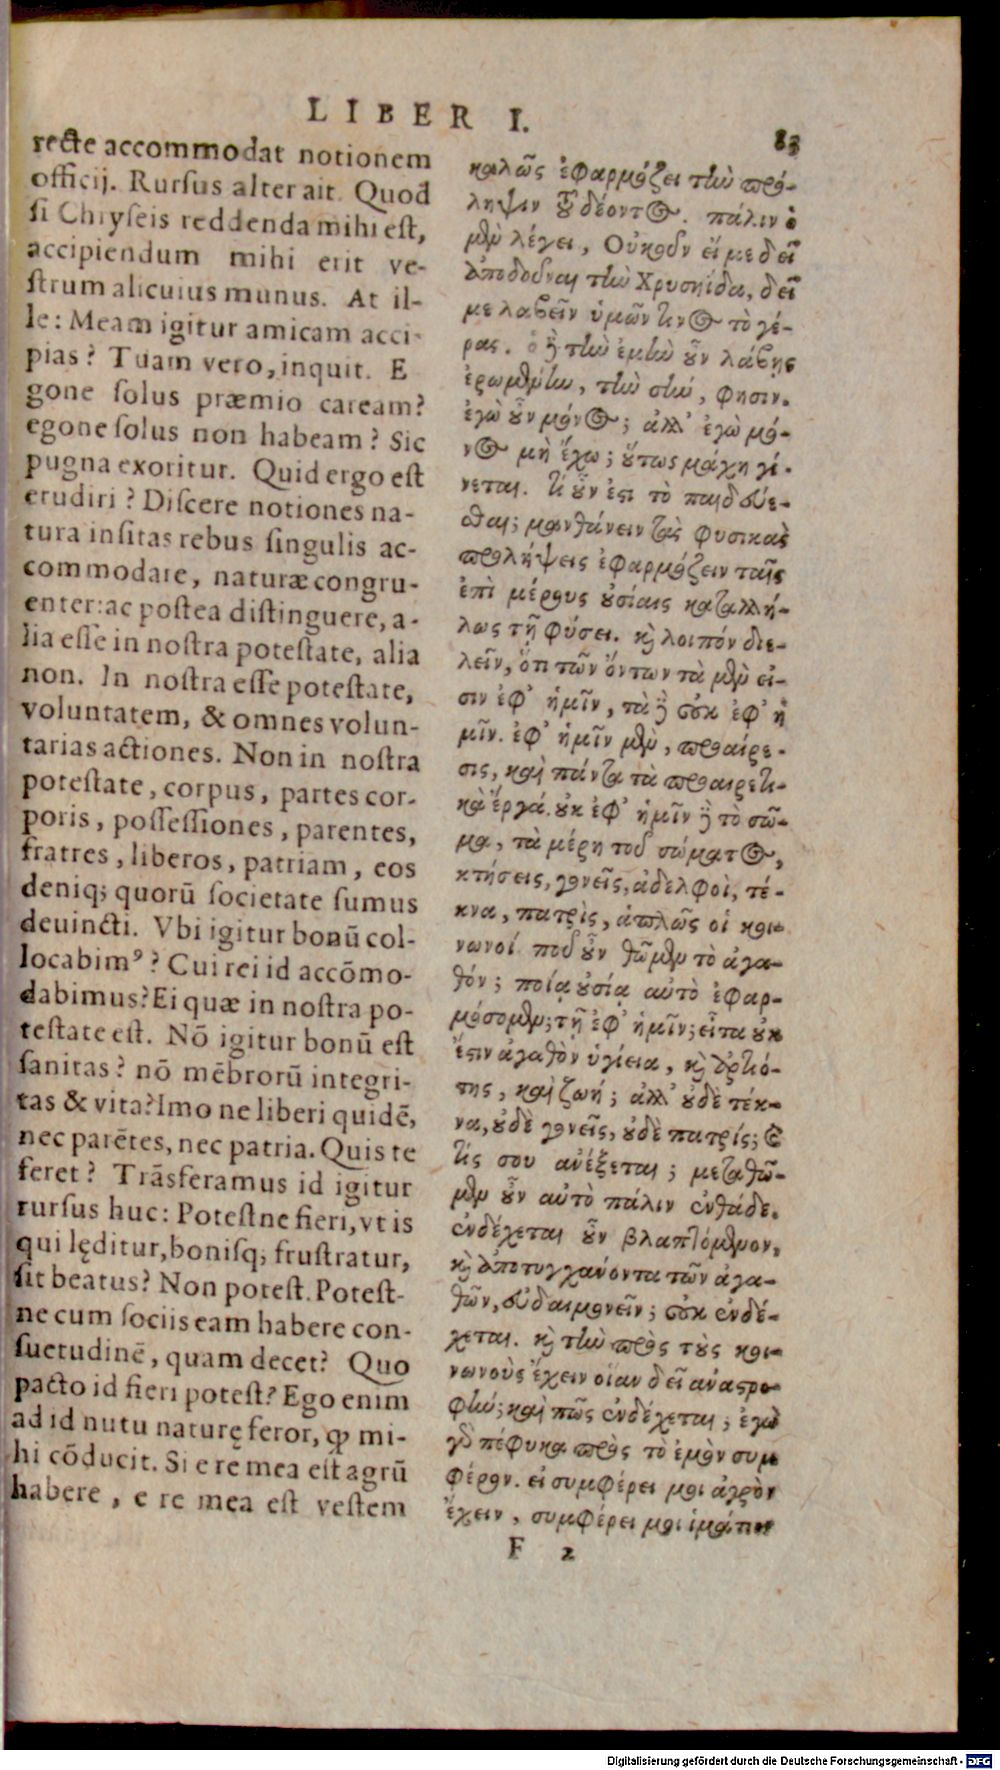 LIBER I.
83
recte accommodat notionem
officij. Rursus alter ait. Quod
si Chryseis reddenda mihi est,
accipiendum mihi erit ve-
strum alicuius munus. At il-
le: Meam igitur amicam acci-
pias? Tuam vero, inquit. E
gone solus præmio caream?
egone solus non habeam? Sic
pugna exoritur. Quid ergo est
erudiri? Discere notiones na-
tura insitas rebus singulis ac-
commodare, naturæ congru-
enter: ac postea distinguere, a-
lia esse in nostra potestate, alia
non. In nostra esse potestate,
voluntatem, & omnes volun-
tarias actiones. Non in nostra
potestate, corpus, partes cor-
poris, possessiones, parentes,
fratres, liberos, patriam, eos
deniq; quorū societate sumus
deuincti. Vbi igitur bonū col-
locabimꝰ? Cui rei id accōmo-
dabimus? Ei quæ in nostra po-
testate est. Nō igitur bonū est
sanitas? nō mēbrorū integri-
tas & vita? Imo ne liberi quidē,
nec parētes, nec patria. Quis te
feret? Trāsferamus id igitur
rursus huc: Potestne fieri, vt is
qui lęditur, bonisq; frustratur,
sit beatus? Non potest. Potest-
ne cum sociis eam habere con-
suetudinē, quam decet? Quo
pacto id fieri potest? Ego enim
ad id nutu naturę feror, qp mi-
hi cōducit. Si e re mea est agrū
habere, e re mea est vestem
καλῶς ἐφαρμόζει τὴν πρό-
ληψιν τοῦ δέοντος. πάλιν ὁ
μὲν λέγει, Οὐκοῦν εἴ με δεῖ
ἀποδοῦναι τὴν Χρυσηίδα, δεῖ
με λαβεῖν ὑμῶν τινος τὸ γέ-
ρας. ὁ δὲ τὴν ἐμὴν οὖν λάβῃς
ἐρωμένην, τὴν σὴν, φησιν.
ἐγὼ οὖν μόνος; ἀλλ' ἐγὼ μό-
νος μὴ ἔχω; οὕτως μάχη γί-
νεται. τί οὖν ἐστι τὸ παιδεύε-
σθαι; μανθάνειν τὰς φυσικὰς
προλήψεις ἐφαρμόζειν ταῖς
ἐπὶ μέρους οὐσίαις καταλλή-
λως τῇ φύσει. καὶ λοιπόν διε-
λεῖν, ὅτι τῶν ὄντων τὰ μὲν εἰ-
σιν ἐφ' ἡμῖν, τὰ δὲ οὐκ ἐφ' ἡ
μῖν. ἐφ' ἡμῖν μὲν, προαίρε-
σις, καὶ πάντα τὰ προαιρετι-
κὰ ἔργα. οὐκ ἐφ' ἡμῖν δὲ τὸ σῶ-
μα, τὰ μέρη τοῦ σώματος,
κτήσεις, γονεῖς, ἀδελφοὶ, τέ-
κνα, πατρὶς, ἁπλῶς οἱ κοι-
νωνοί. ποῦ οὖν θῶμεν τὸ ἀγα-
θόν; ποίᾳ οὐσίᾳ αὐτὸ ἐφαρ-
μόσομεν; τῇ ἐφ' ἡμῖν; εἶτα οὐκ
ἔστιν ἀγαθὸν ὑγίεια, καὶ ἀρτιό-
της, καὶ ζωή; ἀλλ' οὐδὲ τέκ-
να, οὐδὲ γονεῖς, οὐδὲ πατρίς; καὶ
τίς σου ἀνέξεται; μεταθῶ-
μεν οὖν αὐτὸ πάλιν ἐνθάδε.
ἐνδέχεται οὖν βλαπτόμενον,
καὶ ἀποτυγχάνοντα τῶν ἀγα-
θῶν, εὐδαιμονεῖν; οὐκ ἐνδέ-
χεται. καὶ τὴν πρὸς τοὺς κοι-
νωνοὺς ἔχειν οἵαν δεῖ ἀναστρο-
φήν; καὶ πῶς ἐνδέχεται; ἐγὼ
γὰρ πέφυκα πρὸς τὸ ἐμὸν συμ
φέρον. εἰ συμφέρει μοι ἀγρὸν
ἔχειν, συμφέρει μοι ἱμάτιον
F 2
Digitalisierung gefördert durch die Deutsche Forschungsgemeinschaft - DFG